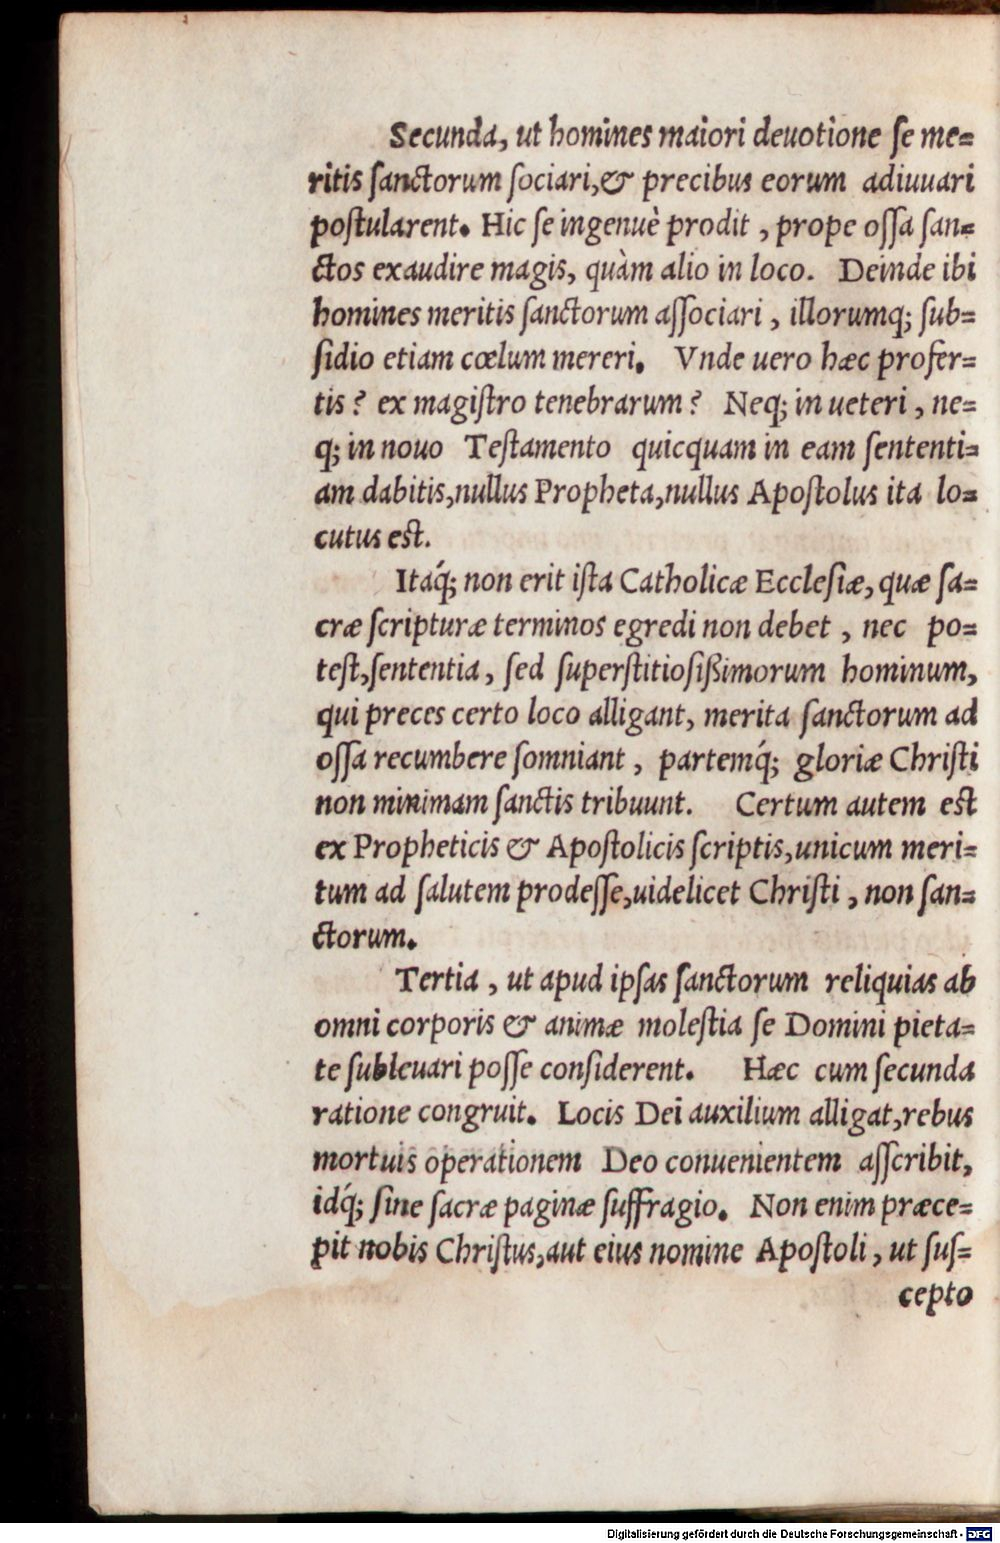 Secunda, ut homines maiori deuotione ſe me=
ritis ſanctorum ſociari,& precibus eorum adiuuari
poſtularent. Hic ſe ingenuè prodit , prope oſſa ſan=
ctos exaudire magis, quàm alio in loco. Deinde ibi
homines meritis ſanctorum aſſociari , illorumq́; ſub=
ſidio etiam cœlum mereri. Vnde uero hæc profer=
tis ? ex magiſtro tenebrarum ? Neq; in ueteri , ne=
q; in nouo Teſtamento quicquam in eam ſententi=
am dabitis,nullus Propheta,nullus Apoſtolus ita lo=
cutus eſt.
Itaq́; non erit iſta Catholicæ Eccleſiæ, quæ ſa=
cræ ſcripturæ terminos egredi non debet , nec po=
teſt,ſententia, ſed ſuperſtitioſißimorum hominum,
qui preces certo loco alligant, merita ſanctorum ad
oſſa recumbere ſomniant , partemq́; gloriæ Chriſti
non minimam ſanctis tribuunt. Certum autem eſt
ex Propheticis & Apoſtolicis ſcriptis,unicum meri=
tum ad ſalutem prodeſſe,uidelicet Chriſti , non ſan=
ctorum.
Tertia , ut apud ipſas ſanctorum reliquias ab
omni corporis & animæ moleſtia ſe Domini pieta=
te ſubleuari poſſe conſiderent. Hæc cum ſecunda
ratione congruit. Locis Dei auxilium alligat,rebus
mortuis operationem Deo conuenientem aſſcribit,
idq́; ſine ſacræ paginæ ſuffragio. Non enim præce=
pit nobis Chriſtus,aut eius nomine Apoſtoli , ut ſuſ=
cepto
Digitalisierung gefördert durch die Deutsche Forschungsgemeinschaft - DFG